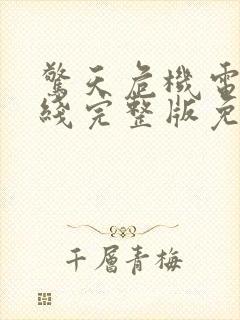 驚天危機電
綫完整版免
千層青梅